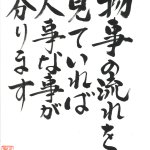 物事の流れを
見ていれば
大事な事が
分ります